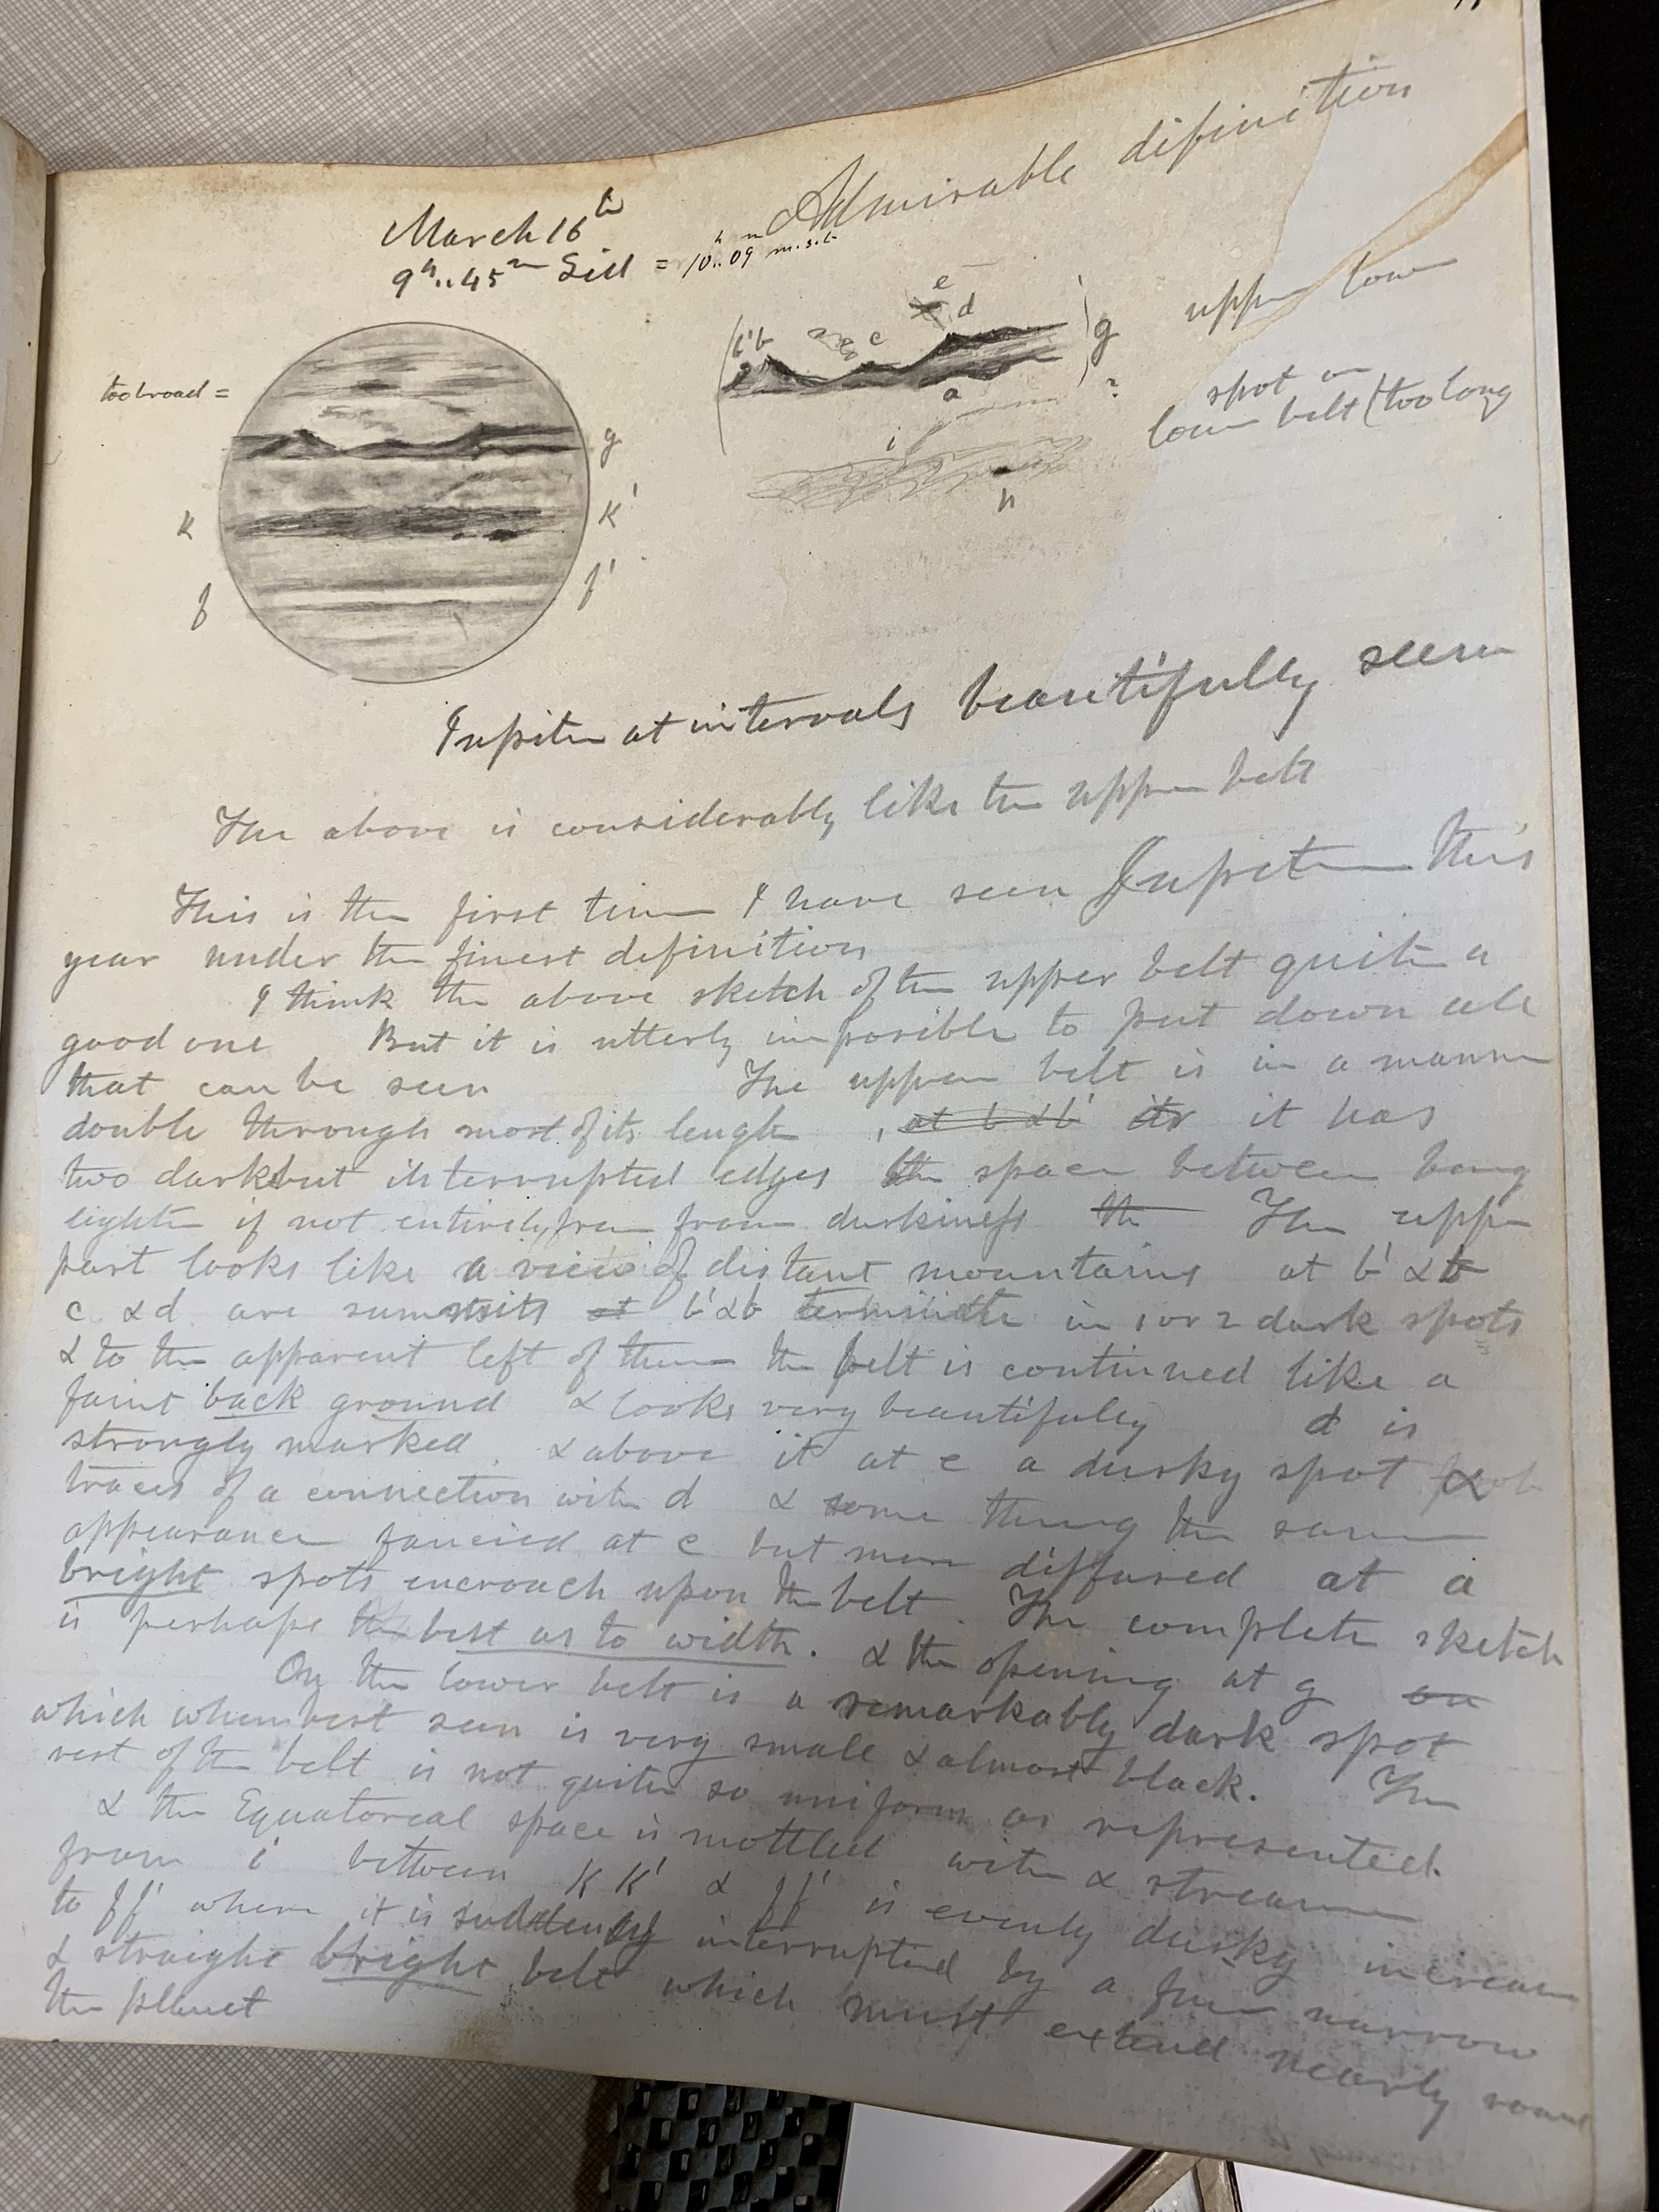 March 16th
9h..45m Sid = 10h..09 m.s.t.
Admirable difinition
too broad =
g
K K'
f f'
b'b c e d g
a ?
i
h
upper lower
spot on
lower belt (too long
Jupiter at intervals beautifully seen
The above is considerably like the upper belt
This is the first time I have seen Jupiter this
year under the finest definition
I think the above sketch of the upper belt quite a
good one But it is utterly impossible to put down all
that can be seen The upper belt is in a manner
double through most of its length , at b & b' its it has
two dark but interrupted edges the space between being
lighter if not entirely free from duskiness the The upper
part looks like a view of distant mountains at b' & b
c & d are summits at b' & b terminate in 1 or 2 dark spots
& to the apparent left of them the belt is continued like a
faint back ground & looks very beautifully d is
strongly marked . & above it at e a dusky spot &
traces of a connection with d & some thing the same
appearance fancied at c but more diffused at a
bright spots encroach upon the belt . The complete sketch
is perhaps the best as to width . & the opening at g on
On the lower belt is a remarkably dark spot
which when best seen is very small & almost black. The
rest of the belt is not quite so uniform as represented.
& the Equatoreal space is mottled with & streams
from i between K K' & f f' is evenly dusky increases
to f f' where it is suddenly interrupted by a fine narrow
& straight bright belt which must extend nearly round
the planet